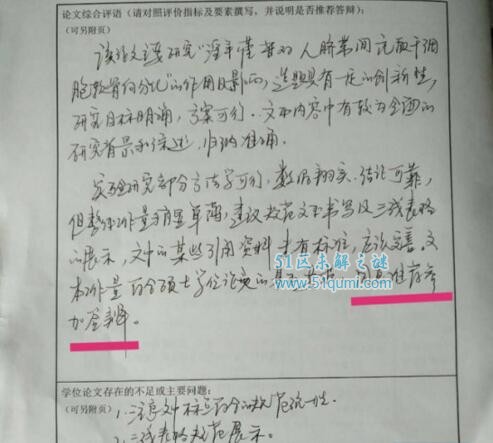 论文综合评语（请对照评价指标及要素撰写，并说明是否推荐答辩）：
（可另附页）
该论文主要研究"淫羊藿苷对人脐带间充质干细
胞软骨向分化"的作用及影响，选题具有一定的创新性，
研究目标明确，方案可行，文中内容中有较为全面的
研究背景和综述，归纳准确。
实验研究部分方法学可行，数据翔实，结论可靠，
但整体工作量稍显单薄，建议规范文书书写及三线表格
的展示，文中的某些引用资料未有标注，应该完善，文
本工作量符合硕士学位论文的基本要求，同意推荐参
加答辩。
51区未解之谜
www.51qumi.com
学位论文存在的不足或主要问题：
（可另附页）1. 注意文中标点符合的规范统一性。
2. 三线表格规范展示。